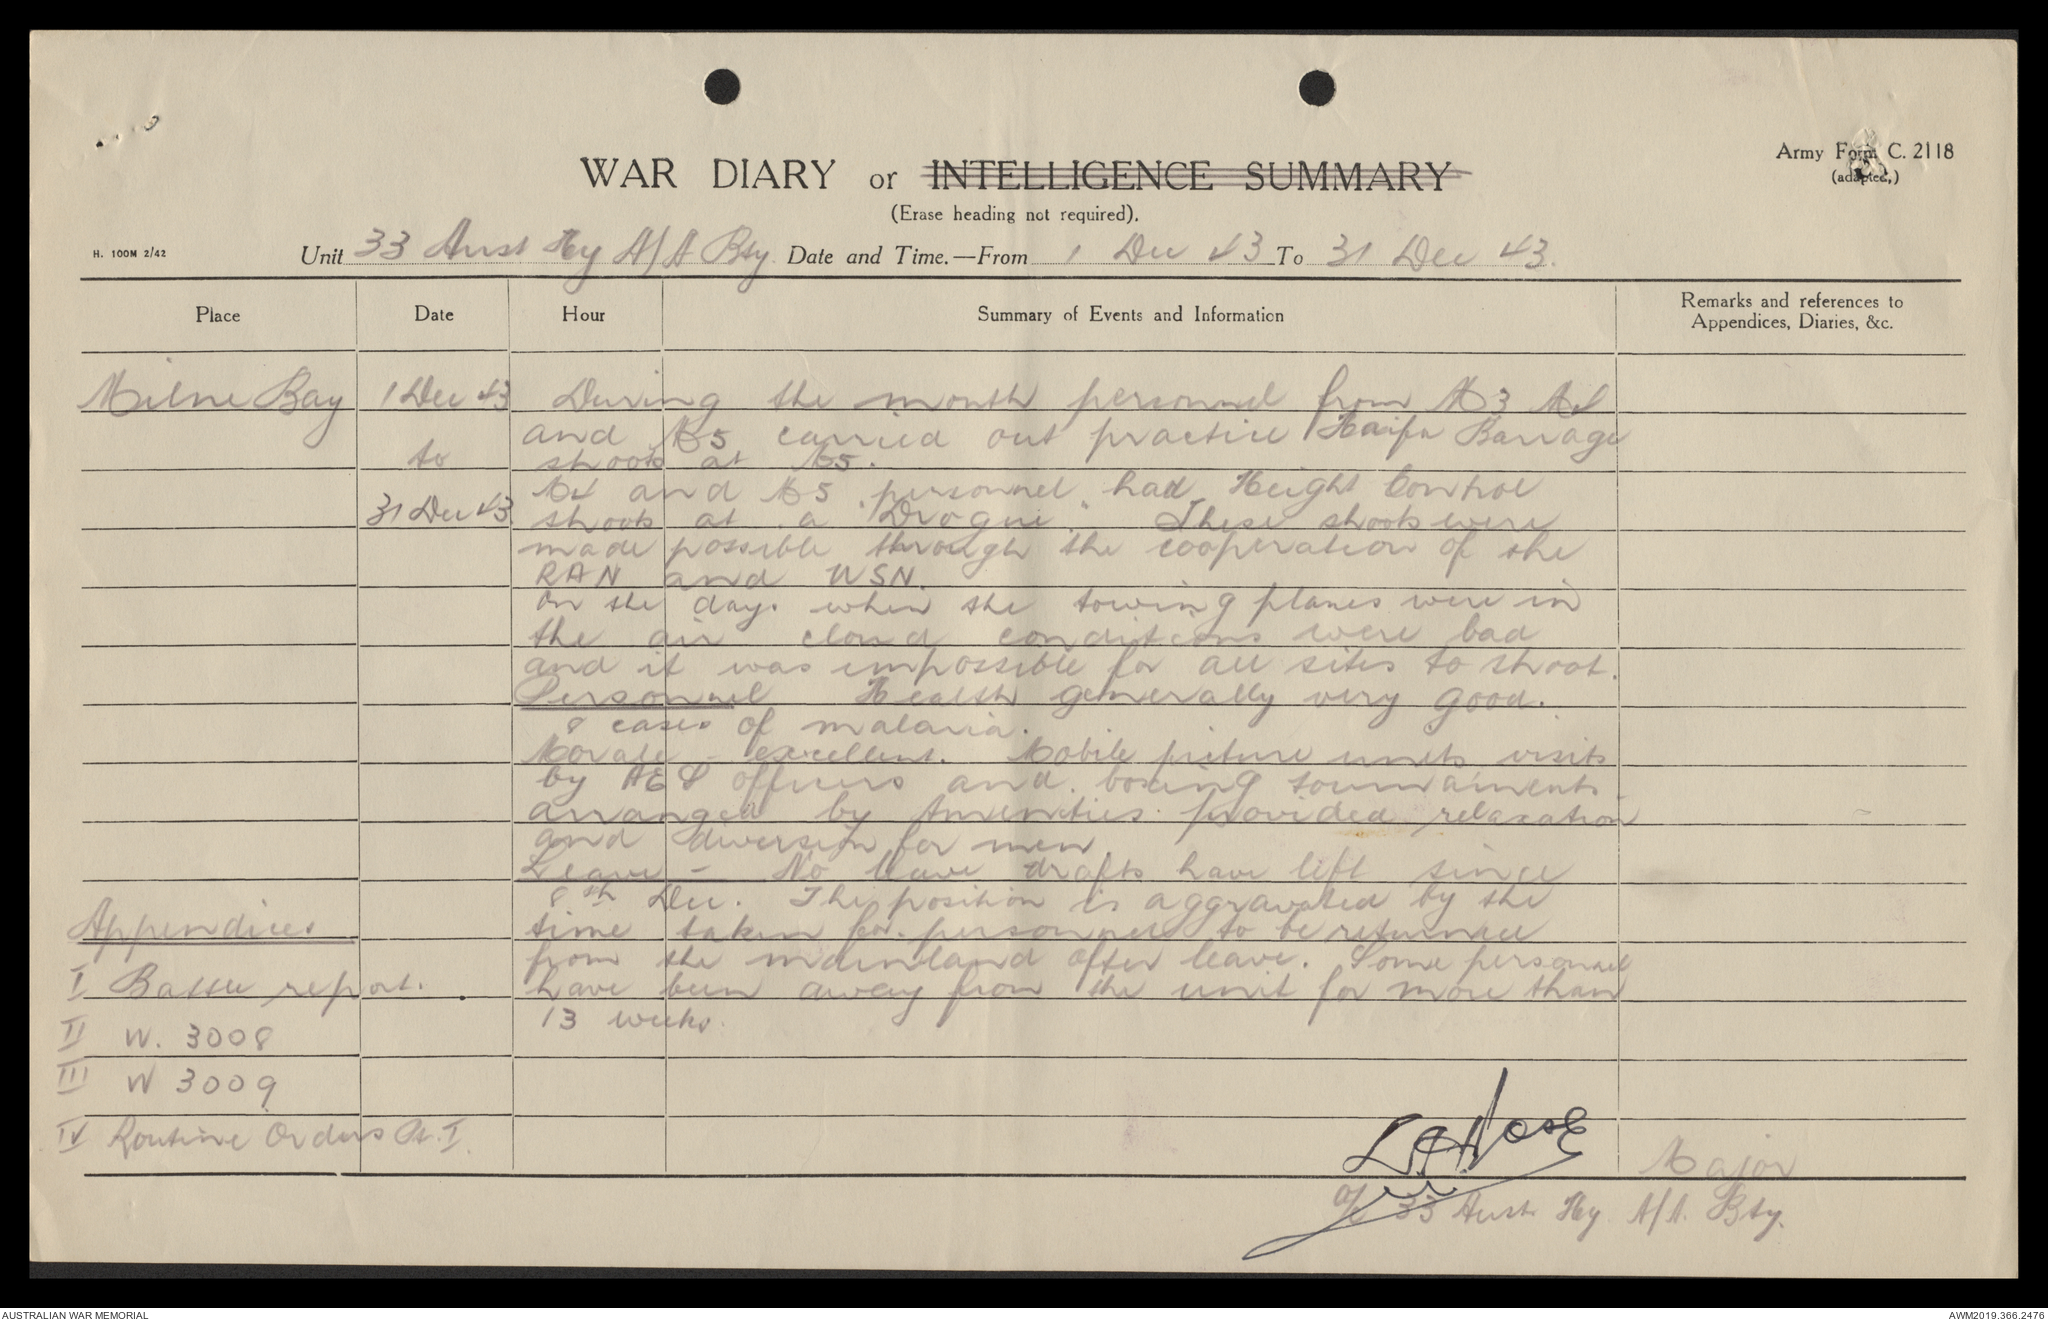 Army Form C. 2118
(adapted.)
WAR DIARY or INTELLIGENCE SUMMARY
(Erase heading not required).
H. 100M 2/42
Unit 33 Aust Hy A/A Bty. Date and Time.—From 1 Dec 43 To 31 Dec 43.
Place Date Hour Summary of Events and Information Remarks and references to
Appendices, Diaries, &c.
Milne Bay 1 Dec 43 During the month personnel from M3 M4
and M5 carried out practice Haifa Barrage
to shoots at M5.
M4 and M5 personnel had Height Control
31 Dec 43 shoots at a "Drogue." These shoots were
made possible through the cooperation of the
RAN and USN.
On the days when the towing planes were in
the air cloud conditions were bad
and it was impossible for all sites to shoot.
Personnel Health generally very good.
8 cases of malaria.
Morale - excellent. Mobile picture units visits
by AES officers and boxing tournaments
arranged by Amenities provided relaxation
and diversion for men.
Leave - No leave drafts have left since
8th Dec. The position is aggravated by the
Appendices time taken for personnel to be returned
from the mainland after leave. Some personnel
I Battle report. have been away from the unit for more than
13 weeks.
II W. 3008
III W 3009
IV Routine Orders Pt. I.
Major
O/C 33 Aust Hy A/A. Bty.
AUSTRALIAN WAR MEMORIAL
AWM2019.366.2476